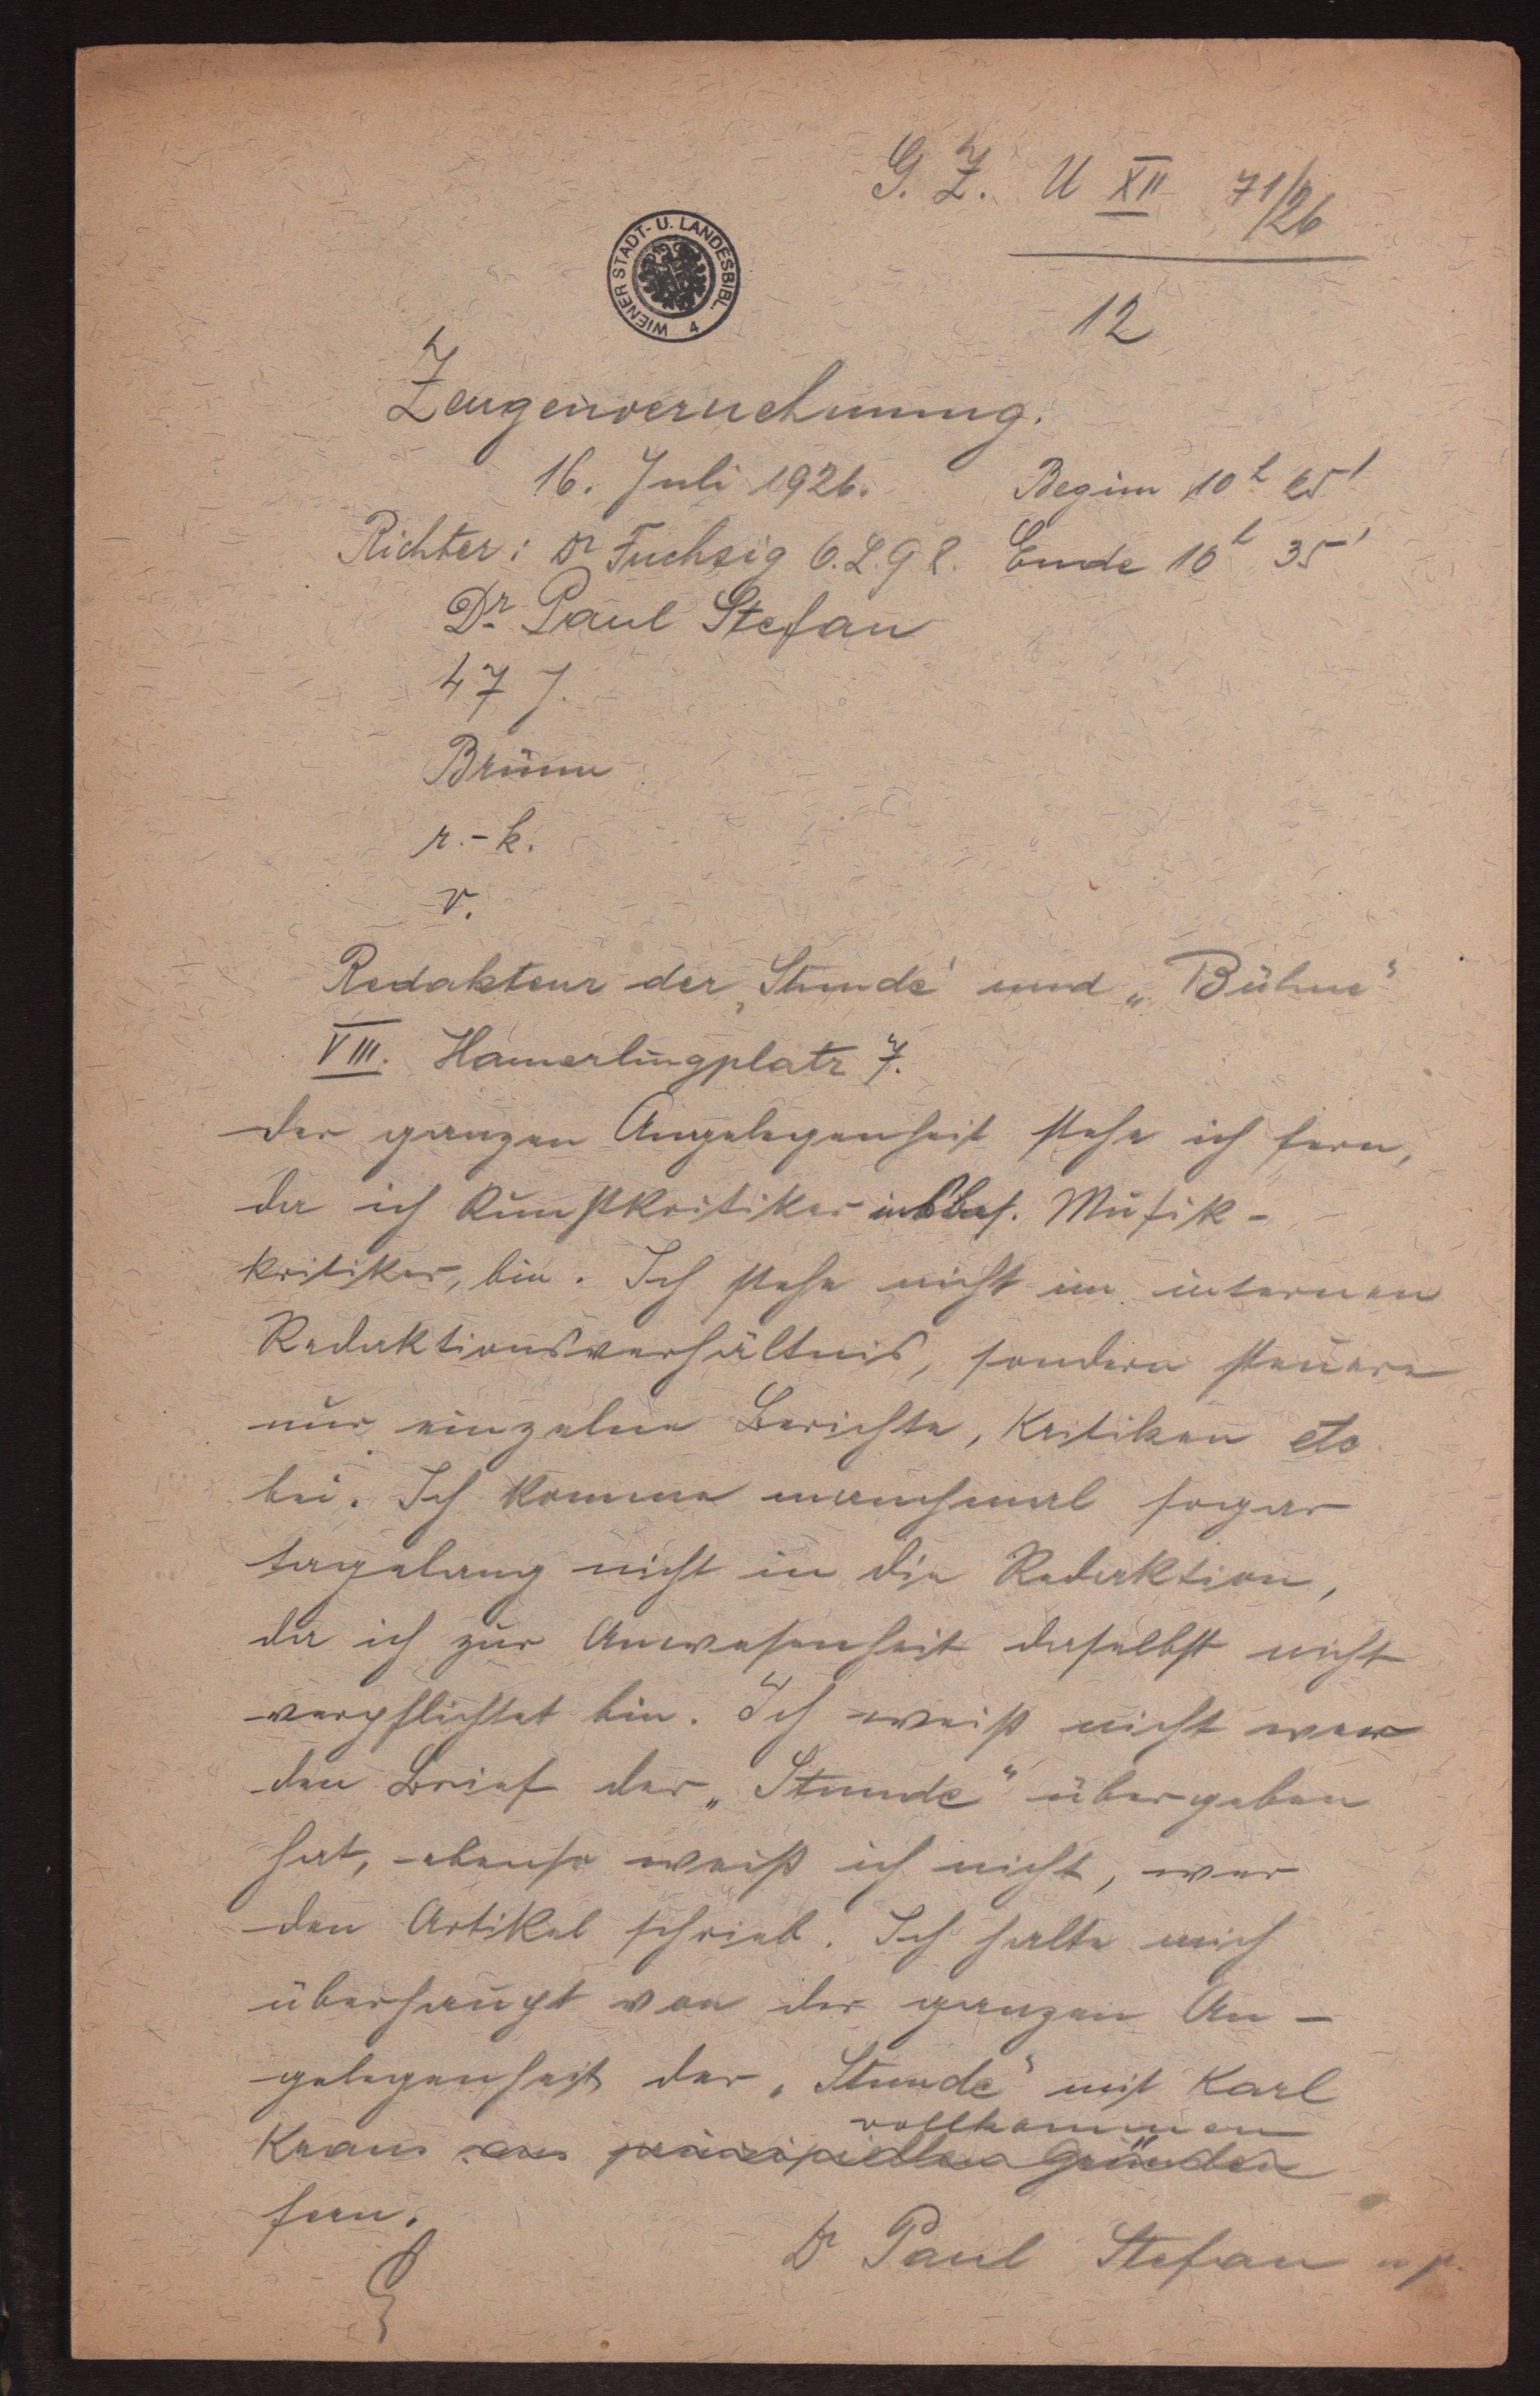 G. Z. U XII 71/26
WIENER STADT- U. LANDESBIBL. 4
12
Zeugenvernehmung.
16. Juli 1926. Beginn 10h 25'
Richter: Dr Fuchsig O.L.G.R. Ende 10h 35'
Dr. Paul Stefan
47 J.
Brünn
r.-k.
v.
Redakteur der „Stunde" und „Bühne"
VIII. Hamerlingplatz 7.
Der ganzen Angelegenheit stehe ich fern,
da ich Kunstkritiker insbes. Musik-
kritiker, bin. Ich stehe nicht im internen
Redaktionsverhältnis, sondern steuere
nur einzelne Berichte, Kritiken etc
bei. Ich komme manchmal sogar
tagelang nicht in die Redaktion,
da ich zur Anwesenheit daselbst nicht
verpflichtet bin. Ich weiß nicht wer
den Brief der „Stunde" übergeben
hat, ebenso weiß ich nicht, wer
den Artikel schrieb. Ich halte mich
überhaupt von der ganzen An-
gelegenheit der „Stunde" mit Karl
vollkommen
Kraus aus prinzipiellen Gründen
fern.
Dr Paul Stefan mp.